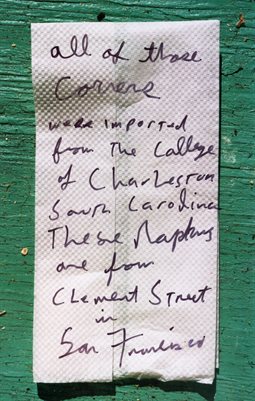 all of those
Corners
were imported
from The College
of Charleston
South Carolina
These Napkins
are from
Clement Street
in
San Francisco